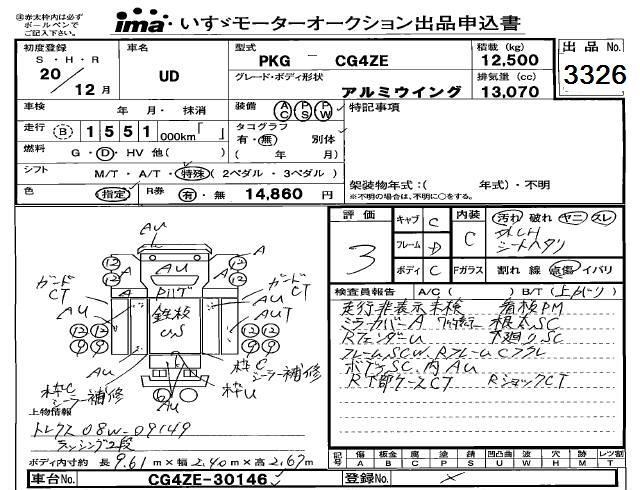 ㊟赤太枠内は必ず
ボールペンで
ご記入下さい。
ima いすゞモーターオークション出品申込書
初度登録
S・H・R
20 / 12月
車名
UD
型式
PKG - CG4ZE
グレード・ボディ形状
アルミウイング
積載 (kg)
12,500
排気量 (cc)
13,070
出品 No.
3326
車検 年 月・抹消
装備 AC PS PW
特記事項
走行 B 1551 000km「 」
タコグラフ
有・無 別体
( 年 月)
燃料 G・D・HV 他( )
シフト M/T・A/T・特殊(2ペダル・3ペダル)
色 指定 R券 有・無 14,860 円
架装物年式:( 年式)・不明
※不明の場合は、不明に○をする。
評価
3
キャブ C
フレーム D
ボディ C
内装
C
汚れ 破れ ヤニ スレ
シートヘタリ
Fガラス 割れ 線 点傷 イバリ
検査員報告 A/C( ) B/T(上がり)
走行非表示未検
ミラーカバーA
根太SC
RフェンダーU
下廻りSC
フレームSC
ボデーSC 内AU
CT RショックCT
AU
AU
A
A
12
12
12
12
ガード
CT
ガード
CT
AU
AU
AUT
鉄板
US
12
12
9
9
12
12
9
9
枠C
シーラー補修
枠C
シーラー補修
枠U
AU
6
上物情報
トレクス 08W-09149
ラッシング2段
ボディ内寸約 長 9.61 m×幅 2.40 m×高 2.67 m
記号 傷A 板金B 腐C 塗P 錆S 凹凸曲U 波W 穴H 跡M レツ割T
車台No. CG4ZE-30146
登録No.